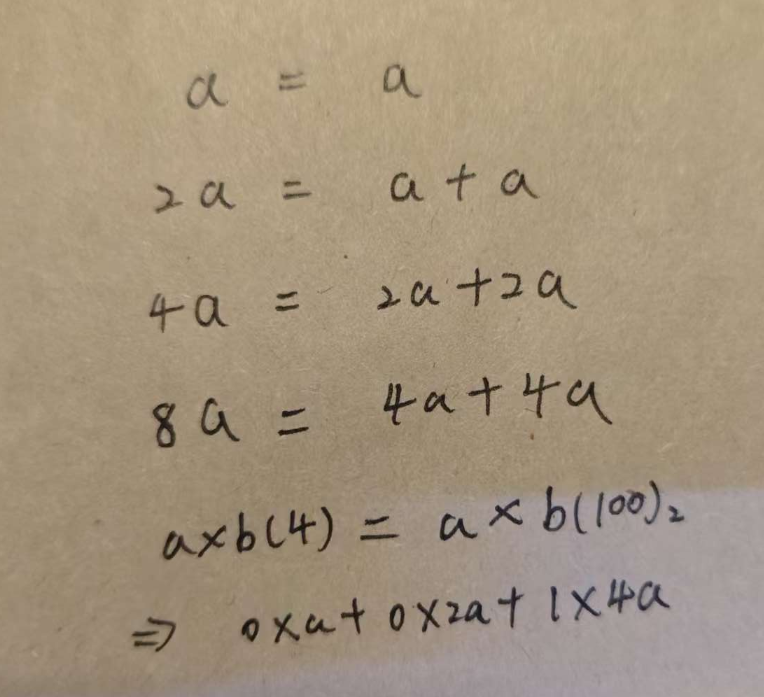 a = a
2a = a + a
4a = 2a + 2a
8a = 4a + 4a
a×b(4) = a × b(100)₂
⇒ 0×a + 0×2a + 1×4a